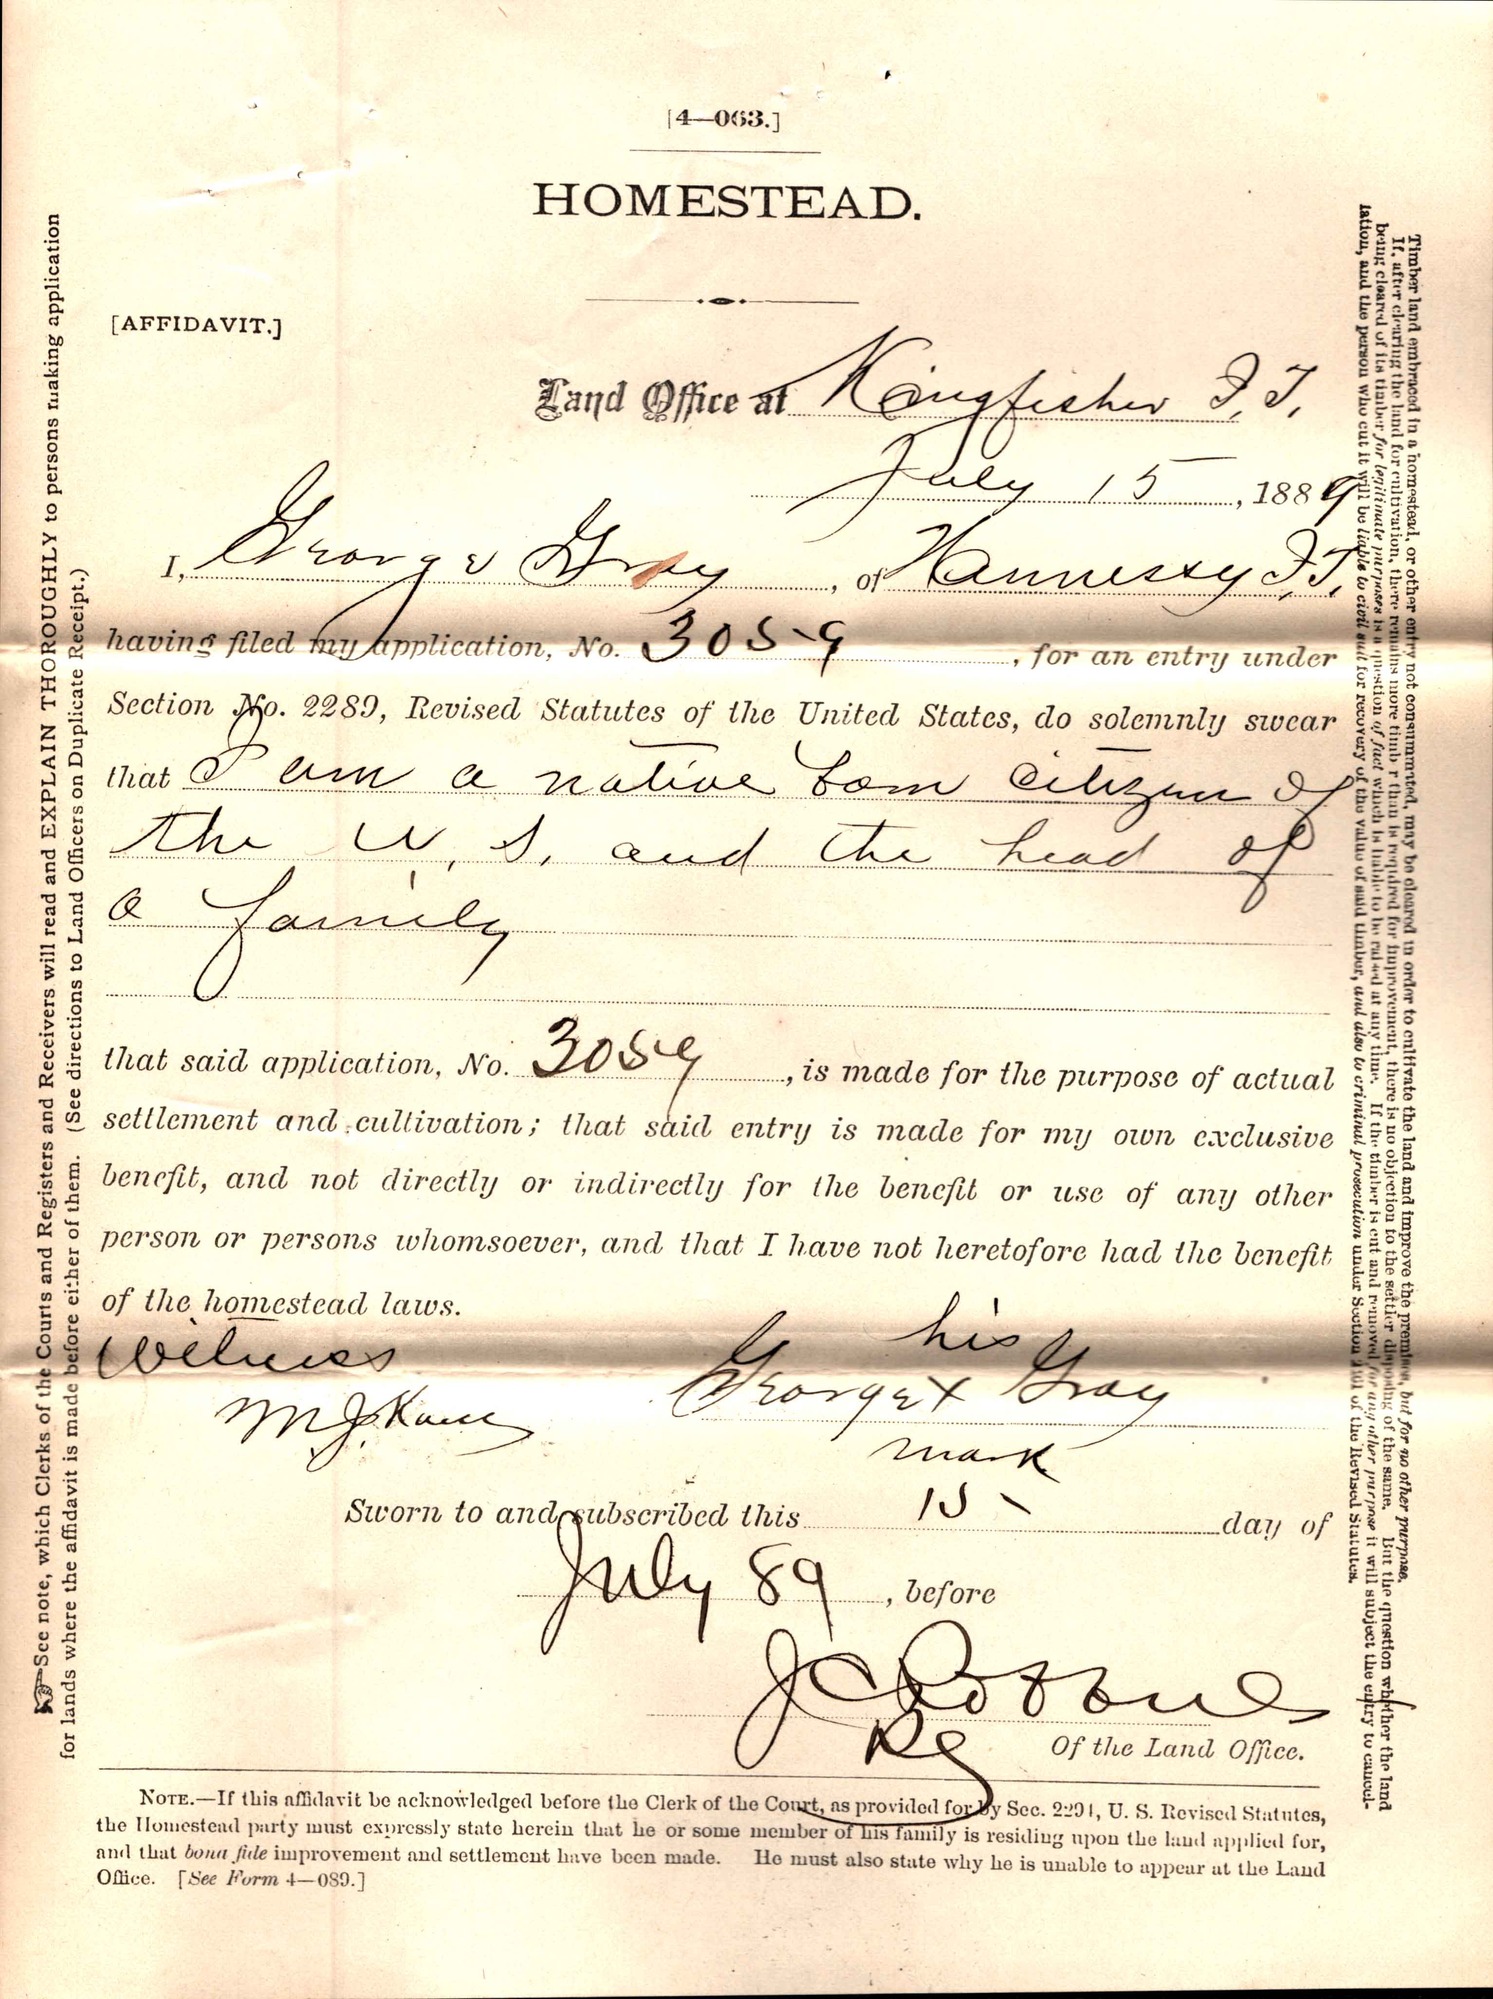 [4—063.]
HOMESTEAD.
[AFFIDAVIT.]
Land Office at Kingfisher I.T.
July 15, 1889
I, George Gray, of Hennessy I.T.
having filed my application, No. 3059, for an entry under
Section No. 2289, Revised Statutes of the United States, do solemnly swear
that I am a native born citizen of
the U.S. and the head of
a family
that said application, No. 3059, is made for the purpose of actual
settlement and cultivation; that said entry is made for my own exclusive
benefit, and not directly or indirectly for the benefit or use of any other
person or persons whomsoever, and that I have not heretofore had the benefit
of the homestead laws.
Witness his
M J Kane George x Gray
mark
Sworn to and subscribed this 15 day of
July 89, before
J C
Reg Of the Land Office.
NOTE.—If this affidavit be acknowledged before the Clerk of the Court, as provided for by Sec. 2291, U. S. Revised Statutes,
the Homestead party must expressly state herein that he or some member of his family is residing upon the land applied for,
and that bona fide improvement and settlement have been made. He must also state why he is unable to appear at the Land
Office. [See Form 4—089.]
☞See note, which Clerks of the Courts and Registers and Receivers will read and EXPLAIN THOROUGHLY to persons making application
for lands where the affidavit is made before either of them. (See directions to Land Officers on Duplicate Receipt.)
Timber land embraced in a homestead, or other entry not consummated, may be cleared in order to cultivate the land and improve the premises, but for no other purpose.
If, after clearing the land for cultivation, there remains more timber than is required for improvement, there is no objection to the settler disposing of the same. But the question whether the land
being cleared of its timber for legitimate purposes is a question of fact which is liable to be raised at any time. If the timber is cut and removed for any other purpose it will subject the entry to cancel-
lation, and the person who cut it will be liable to civil suit for recovery of the value of said timber, and also to criminal prosecution under Section 2461 of the Revised Statutes.